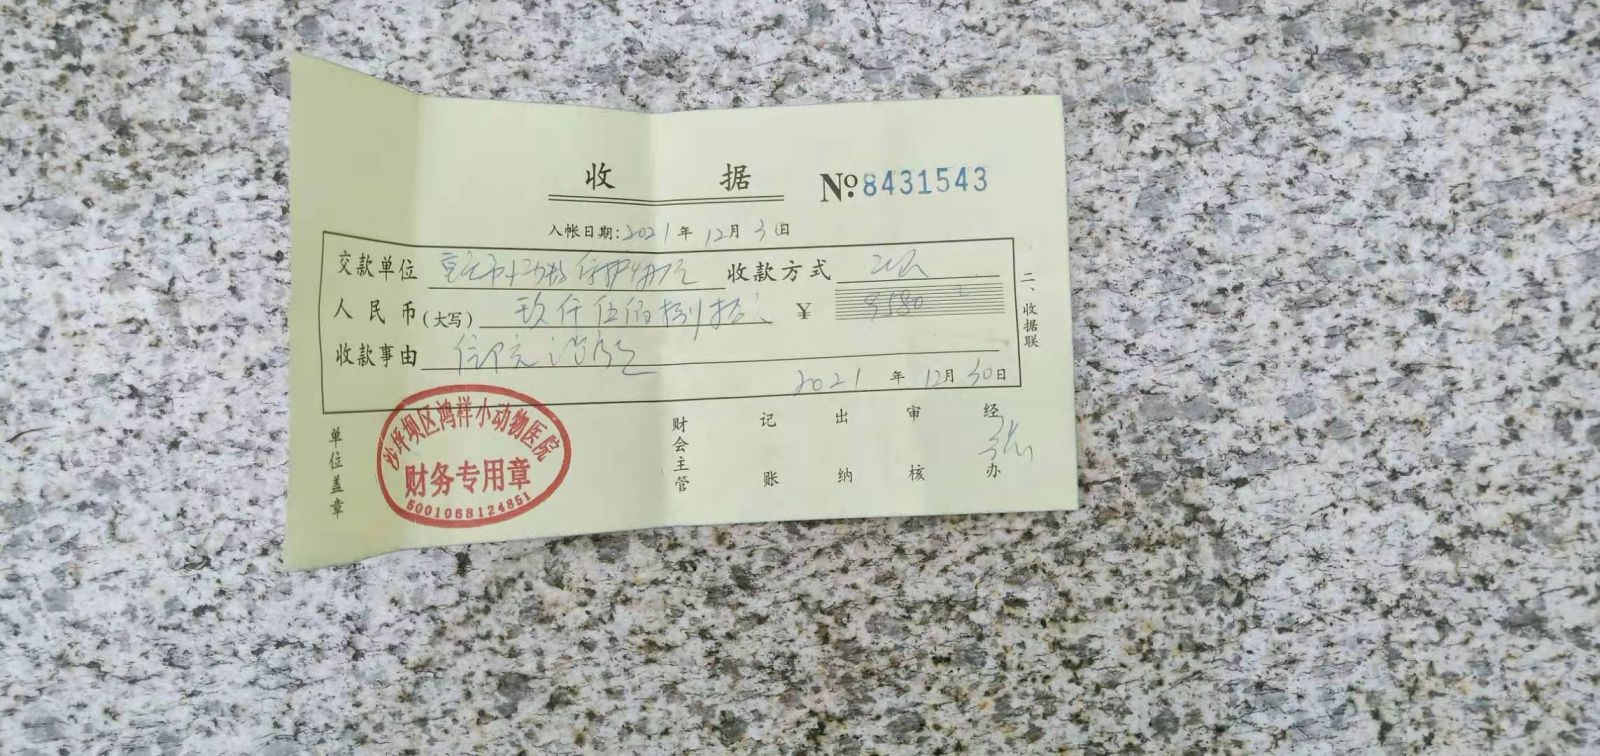 收 据 No.8431543
入帐日期:2021年12月3日
交款单位 重庆市小动物保护协会 收款方式
人民币(大写) 玖仟伍佰捌拾 ¥ 9580
收款事由 住院治疗
2021年12月30日
二、收据联
单位盖章
沙坪坝区鸿祥小动物医院
财务专用章
5001068124851
财会主管 记账 出纳 审核 经办 张